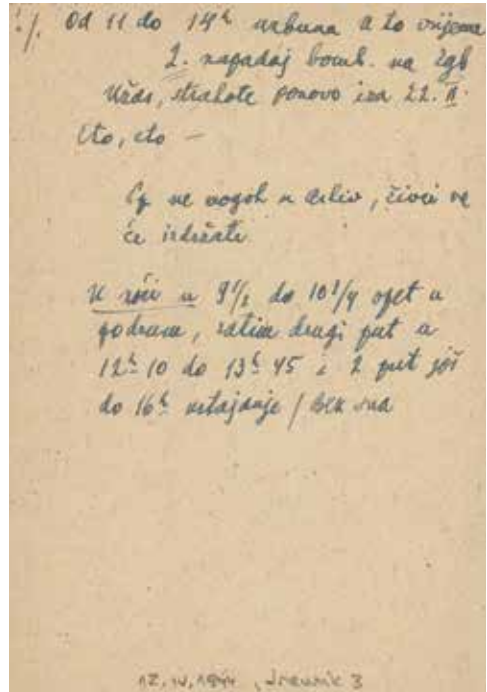 Od 11 do 14h uzbuna a to vrijeme
2. napadaj bomb. na Zgb
Užas, strahote ponovo iza 22. II.
Eto, eto —
ne mogoh u, živci ne
će izdržati
U noći u 9 1/2 do 10 3/4 opet u
podrum, zatim drugi put u
12h 10 do 13h 45 i 2 put još
do 16h ustajanje / bez sna
12. IV. 1944, dnevnik 3